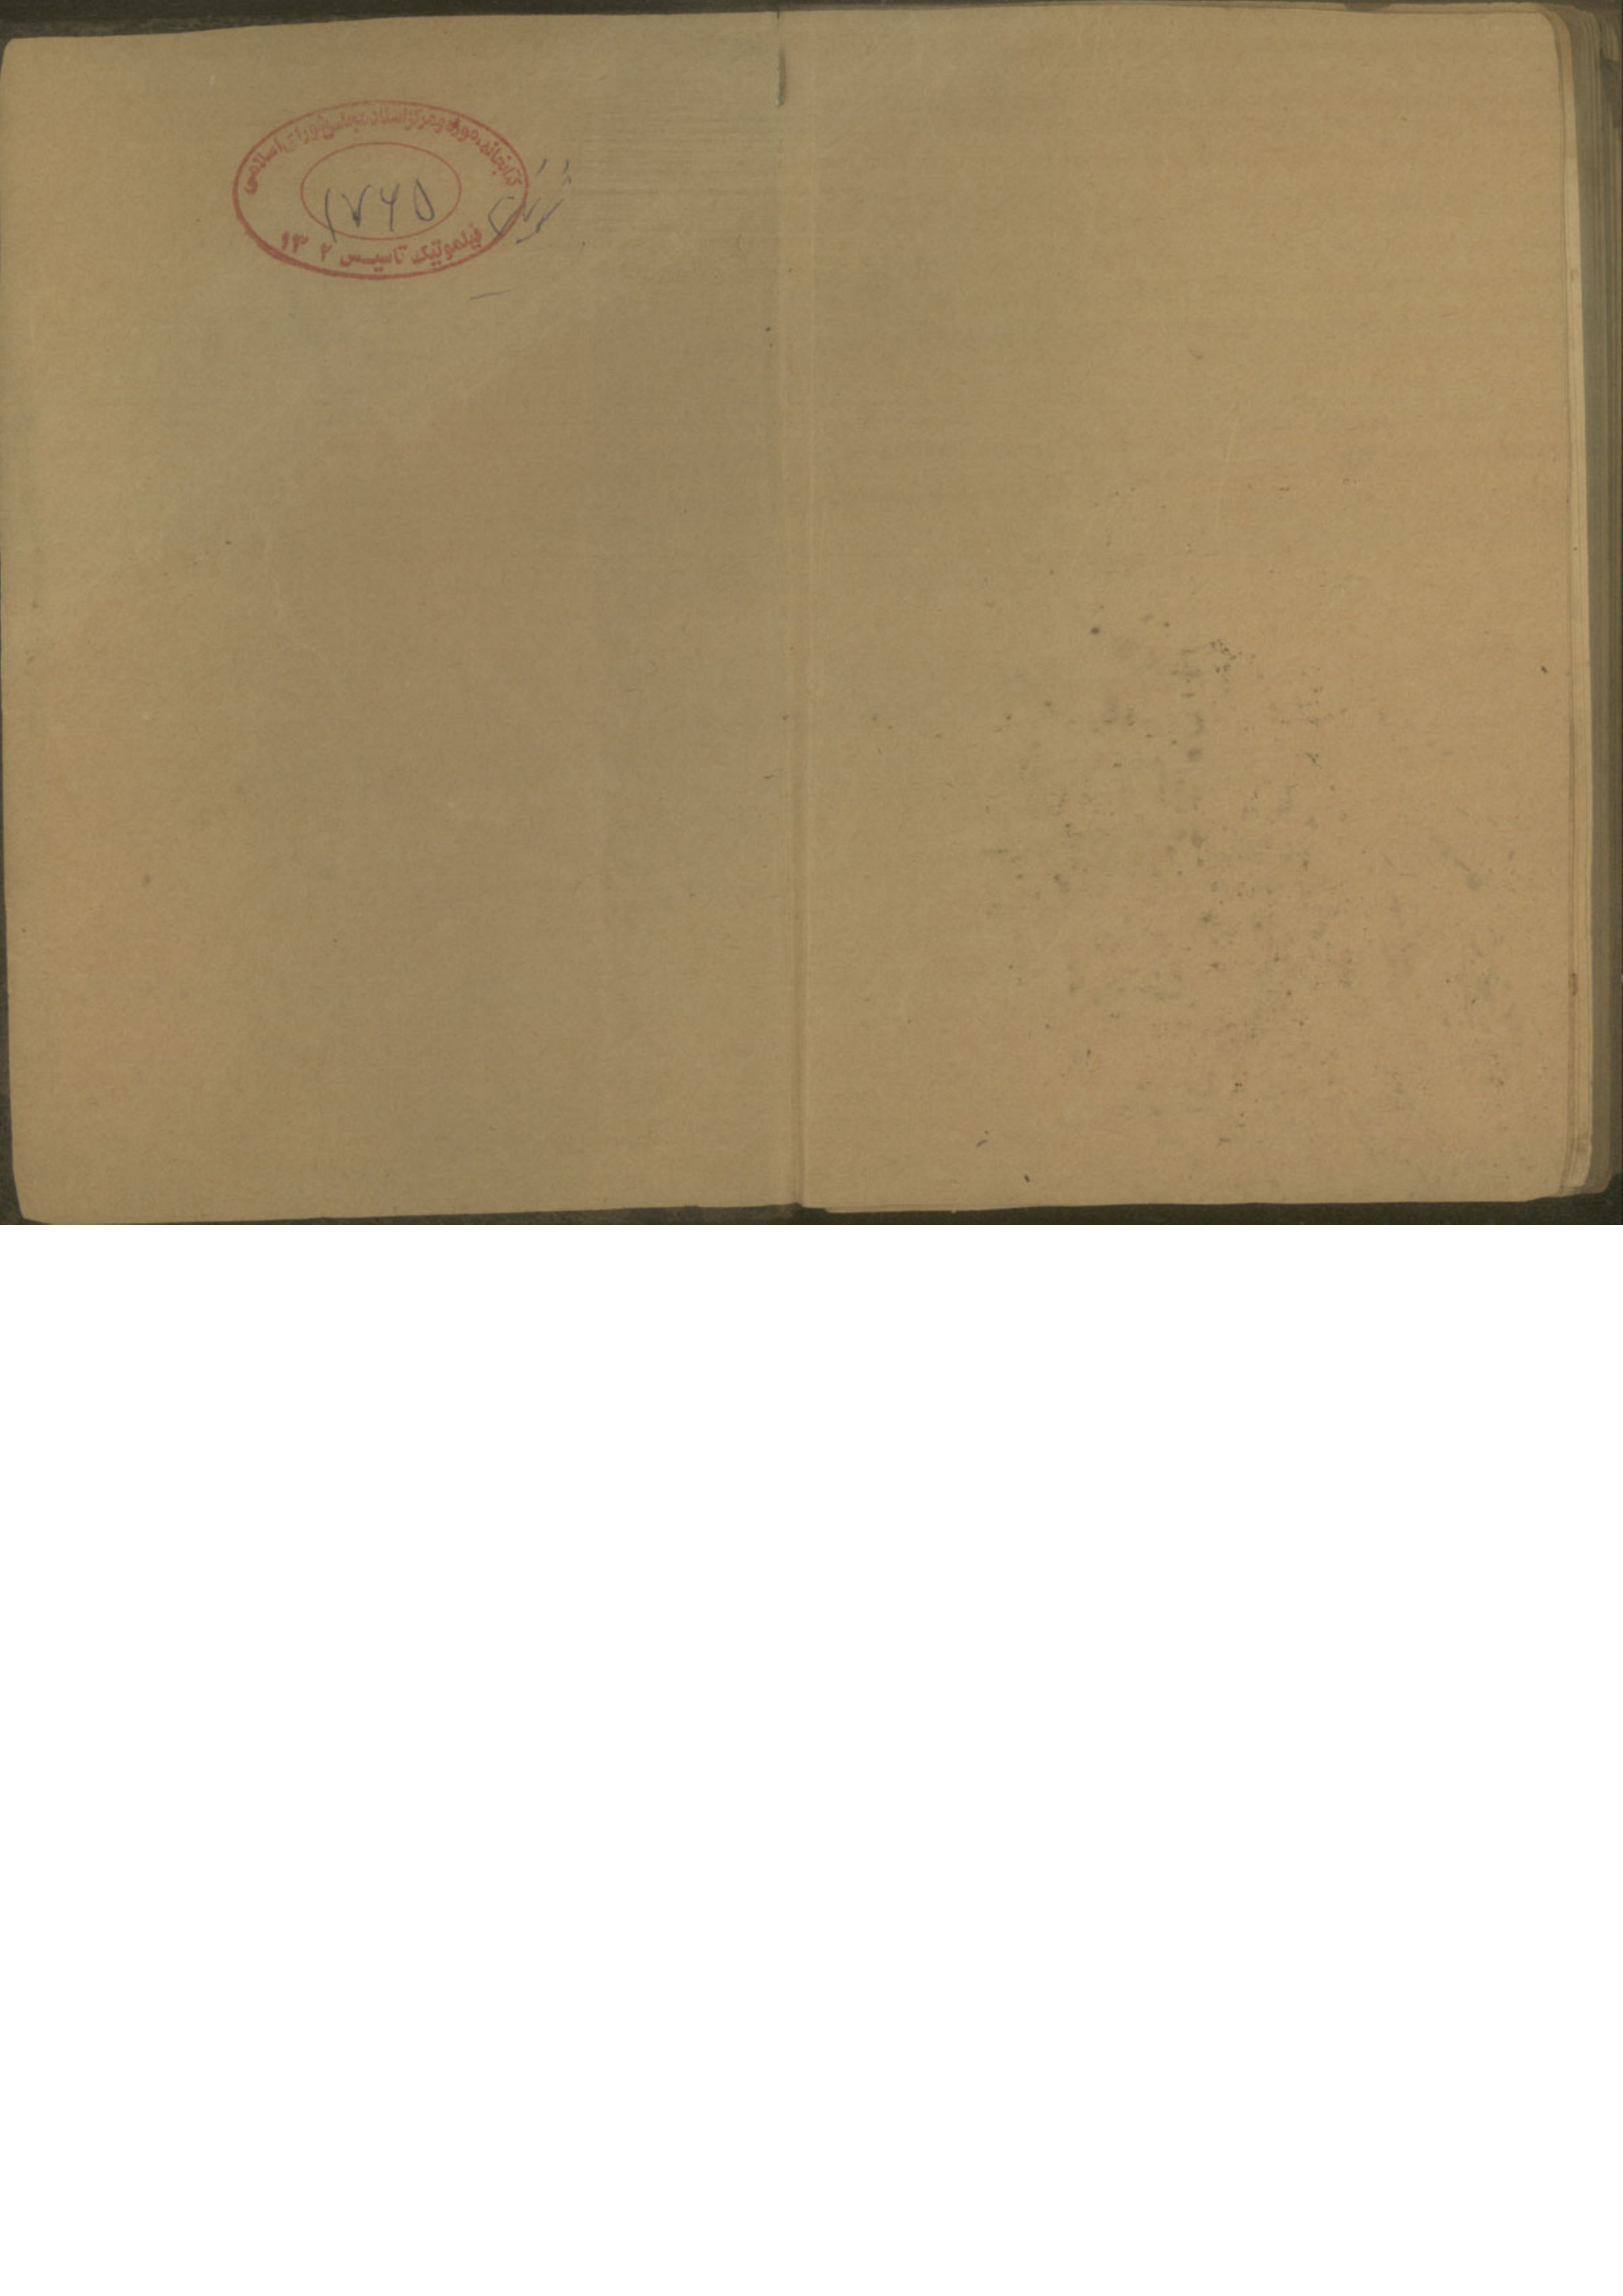 کتابخانه، موزه و مرکز اسناد مجلس شورای اسلامی
۱۷۶۵
فیلموتیک تاسیس ۲ ۱۳